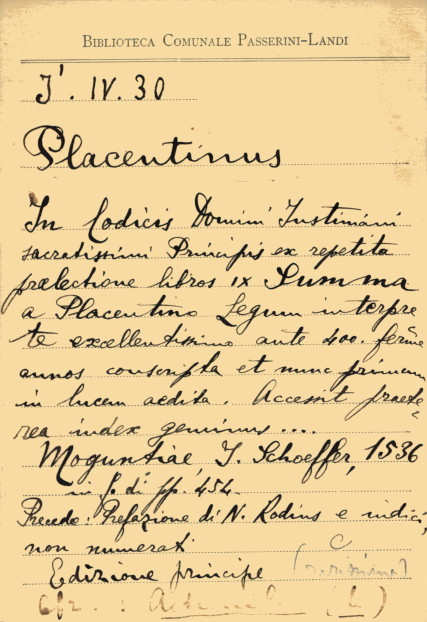 BIBLIOTECA COMUNALE PASSERINI-LANDI
J'. IV. 30
Placentinus
In Codicis Domini Justiniani
sacratissimi Principis ex repetita
prælectione libros IX Summa
a Placentino Legum interpre
te excellentissimo ante 400. ferme
annos conscripta et nunc primum
in lucem aedita. Accessit praete=
rea index geminus ....
Moguntiae, J. Schoeffer, 1536
in f. di pp. 454.
Precede: Prefazione di N. Rodius e indici,
non numerati
C
Edizione principe
Cfr. :